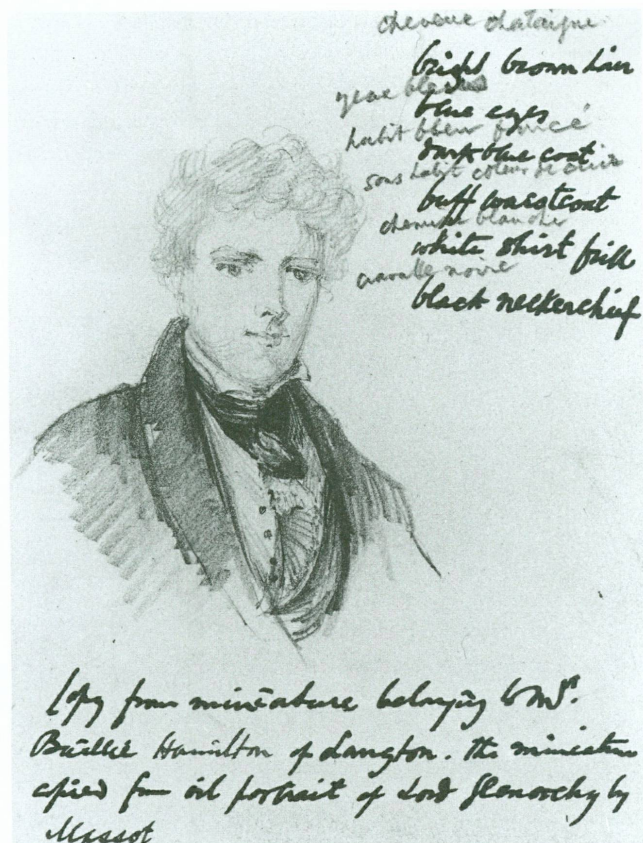 cheveux chataigne
bright brown hair
yeux bleus
blue eyes
habit bleu foncé
dark blue coat
sous habit couleur de
buff waistcoat
chemise blanche
white shirt frill
cravatte noire
black neckerchief
Copy from miniature belonging to Mrs.
Baillie Hamilton of Langton. The miniature
copied from oil portrait of Lord Glenorchy by
Massot